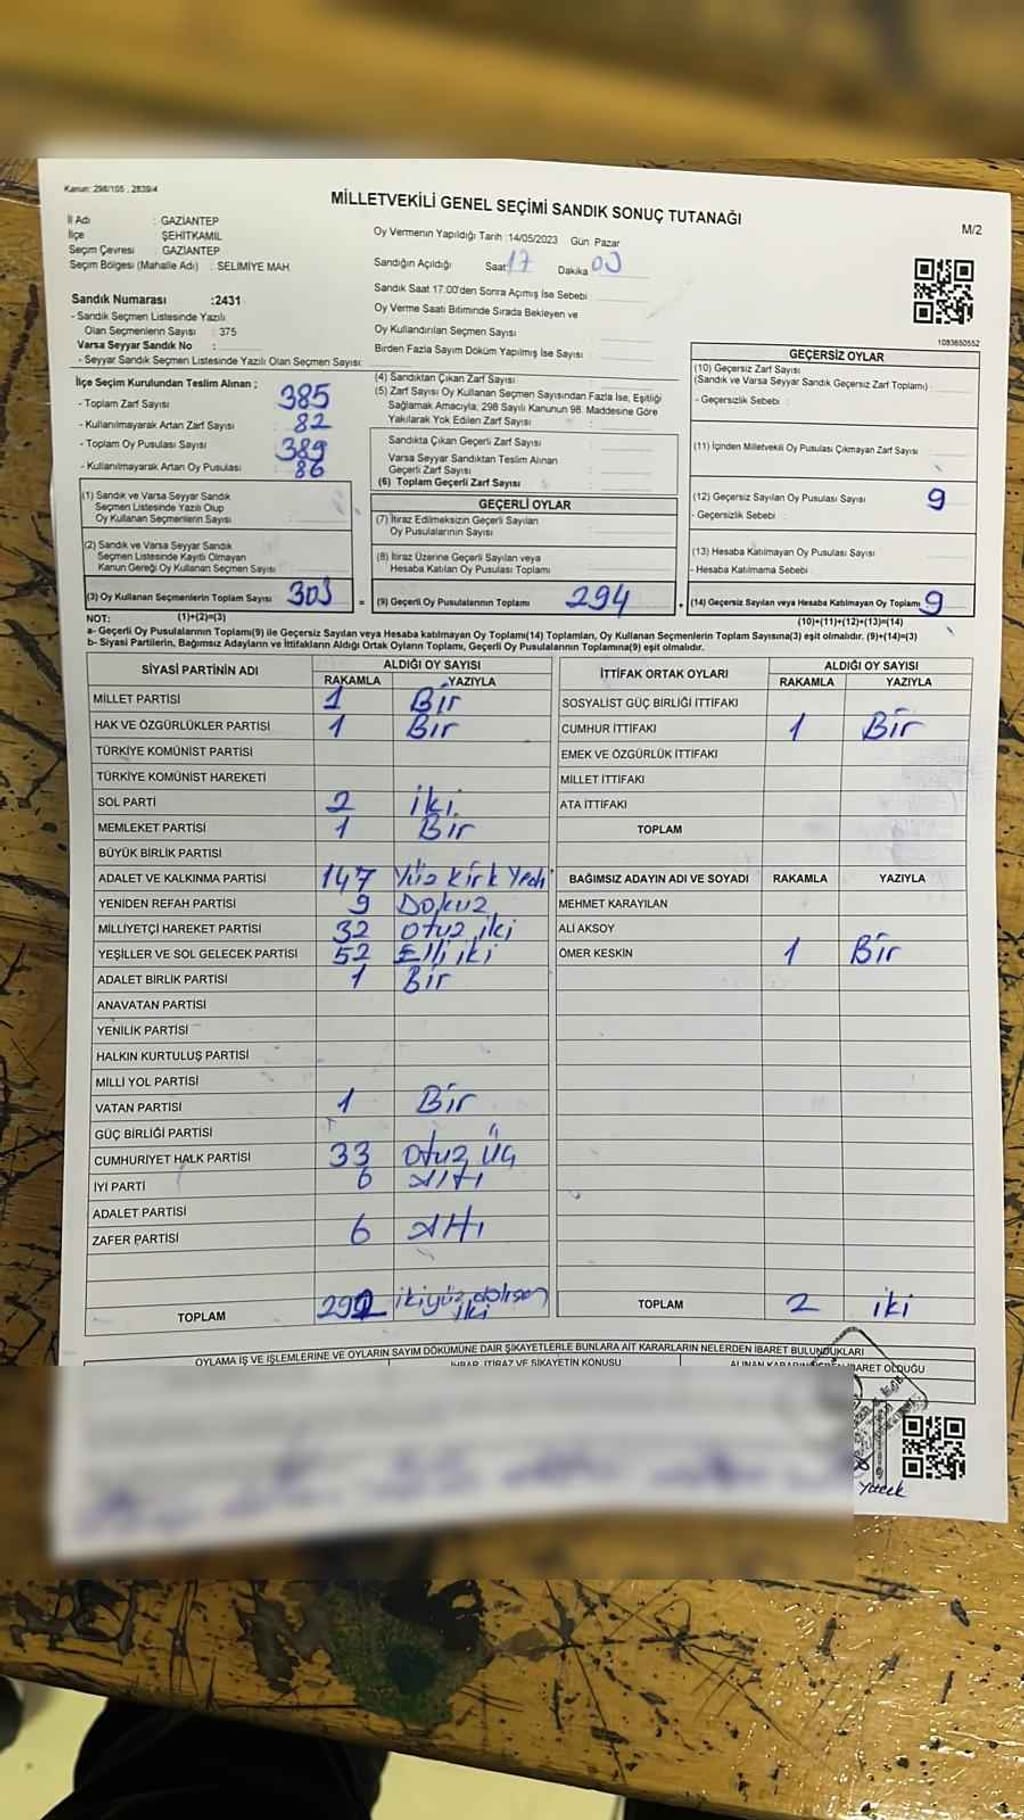 Kanun: 298/105 , 2839/4
MİLLETVEKİLİ GENEL SEÇİMİ SANDIK SONUÇ TUTANAĞI
M/2
İl Adı : GAZİANTEP
İlçe : ŞEHİTKAMİL
Seçim Çevresi : GAZİANTEP
Seçim Bölgesi (Mahalle Adı) : SELIMIYE MAH
Oy Vermenin Yapıldığı Tarih :14/05/2023 Gün Pazar
Sandığın Açıldığı Saat 17 Dakika 00
Sandık Saat 17:00'den Sonra Açımış İse Sebebi
Oy Verme Saati Bitiminde Sırada Bekleyen ve
Oy Kullandırılan Seçmen Sayısı
Birden Fazla Sayım Döküm Yapılmış İse Sayısı
Sandık Numarası :2431
- Sandık Seçmen Listesinde Yazılı
Olan Seçmenlerin Sayısı : 375
Varsa Seyyar Sandık No :
- Seyyar Sandık Seçmen Listesinde Yazılı Olan Seçmen Sayısı:
1083650552
İlçe Seçim Kurulundan Teslim Alınan ;
- Toplam Zarf Sayısı 385
- Kullanılmayarak Artan Zarf Sayısı 82
- Toplam Oy Pusulası Sayısı 389
- Kullanılmayarak Artan Oy Pusulası 86
(1) Sandık ve Varsa Seyyar Sandık
Seçmen Listesinde Yazılı Olup
Oy Kullanan Seçmenlerin Sayısı
(2) Sandık ve Varsa Seyyar Sandık
Seçmen Listesinde Kayıtlı Olmayan
Kanun Gereği Oy Kullanan Seçmen Sayısı
(3) Oy Kullanan Seçmenlerin Toplam Sayısı 303
(4) Sandıktan Çıkan Zarf Sayısı
(5) Zarf Sayısı Oy Kullanan Seçmen Sayısından Fazla İse, Eşitliği
Sağlamak Amacıyla, 298 Sayılı Kanunun 98. Maddesine Göre
Yakılarak Yok Edilen Zarf Sayısı :
Sandıkta Çıkan Geçerli Zarf Sayısı
Varsa Seyyar Sandıktan Teslim Alınan
Geçerli Zarf Sayısı
(6) Toplam Geçerli Zarf Sayısı
GEÇERLİ OYLAR
(7) İtiraz Edilmeksizin Geçerli Sayılan
Oy Pusulalarının Sayısı
(8) İtiraz Üzerine Geçerli Sayılan veya
Hesaba Katılan Oy Pusulası Toplamı
= (9) Geçerli Oy Pusulalarının Toplamı 294
GEÇERSİZ OYLAR
(10) Geçersiz Zarf Sayısı
(Sandık ve Varsa Seyyar Sandık Geçersiz Zarf Toplamı)
- Geçersizlik Sebebi :
(11) İçinden Milletvekili Oy Pusulası Çıkmayan Zarf Sayısı
(12) Geçersiz Sayılan Oy Pusulası Sayısı 9
- Geçersizlik Sebebi
(13) Hesaba Katılmayan Oy Pusulası Sayısı
- Hesaba Katılmama Sebebi
(14) Geçersiz Sayılan veya Hesaba Katılmayan Oy Toplamı 9
NOT: (1)+(2)=(3)
(10)+(11)+(12)+(13)=(14)
a- Geçerli Oy Pusulalarının Toplamı(9) ile Geçersiz Sayılan veya Hesaba katılmayan Oy Toplamı(14) Toplamları, Oy Kullanan Seçmenlerin Toplam Sayısına(3) eşit olmalıdır. (9)+(14)=(3)
b- Siyasi Partilerin, Bağımsız Adayların ve İttifakların Aldığı Ortak Oyların Toplamı, Geçerli Oy Pusulalarının Toplamına(9) eşit olmalıdır.
SİYASİ PARTİNİN ADI ALDIĞI OY SAYISI
RAKAMLA YAZIYLA
MİLLET PARTİSİ 1 Bir
HAK VE ÖZGÜRLÜKLER PARTİSİ 1 Bir
TÜRKİYE KOMÜNİST PARTİSİ
TÜRKİYE KOMÜNİST HAREKETİ
SOL PARTİ 2 iki
MEMLEKET PARTİSİ 1 Bir
BÜYÜK BİRLİK PARTİSİ
ADALET VE KALKINMA PARTİSİ 147 Yüz Kırk Yedi
YENİDEN REFAH PARTİSİ 9 Dokuz
MİLLİYETÇİ HAREKET PARTİSİ 32 otuz iki
YEŞİLLER VE SOL GELECEK PARTİSİ 52 Elli iki
ADALET BİRLİK PARTİSİ 1 Bir
ANAVATAN PARTİSİ
YENİLİK PARTİSİ
HALKIN KURTULUŞ PARTİSİ
MİLLİ YOL PARTİSİ
VATAN PARTİSİ 1 Bir
GÜÇ BİRLİĞİ PARTİSİ
CUMHURİYET HALK PARTİSİ 33 otuz üç
İYİ PARTİ 6 Altı
ADALET PARTİSİ
ZAFER PARTİSİ 6 Altı
TOPLAM 292 ikiyüz doksan
iki
İTTİFAK ORTAK OYLARI ALDIĞI OY SAYISI
RAKAMLA YAZIYLA
SOSYALİST GÜÇ BİRLİĞİ İTTİFAKI
CUMHUR İTTİFAKI 1 Bir
EMEK VE ÖZGÜRLÜK İTTİFAKI
MİLLET İTTİFAKI
ATA İTTİFAKI
TOPLAM
BAĞIMSIZ ADAYIN ADI VE SOYADI RAKAMLA YAZIYLA
MEHMET KARAYILAN
ALİ AKSOY
ÖMER KESKİN 1 Bir
TOPLAM 2 iki
OYLAMA İŞ VE İŞLEMLERİNE VE OYLARIN SAYIM DÖKÜMÜNE DAİR ŞİKAYETLERLE BUNLARA AİT KARARLARIN NELERDEN İBARET BULUNDUKLARI
İHBAR, İTİRAZ VE ŞİKAYETİN KONUSU